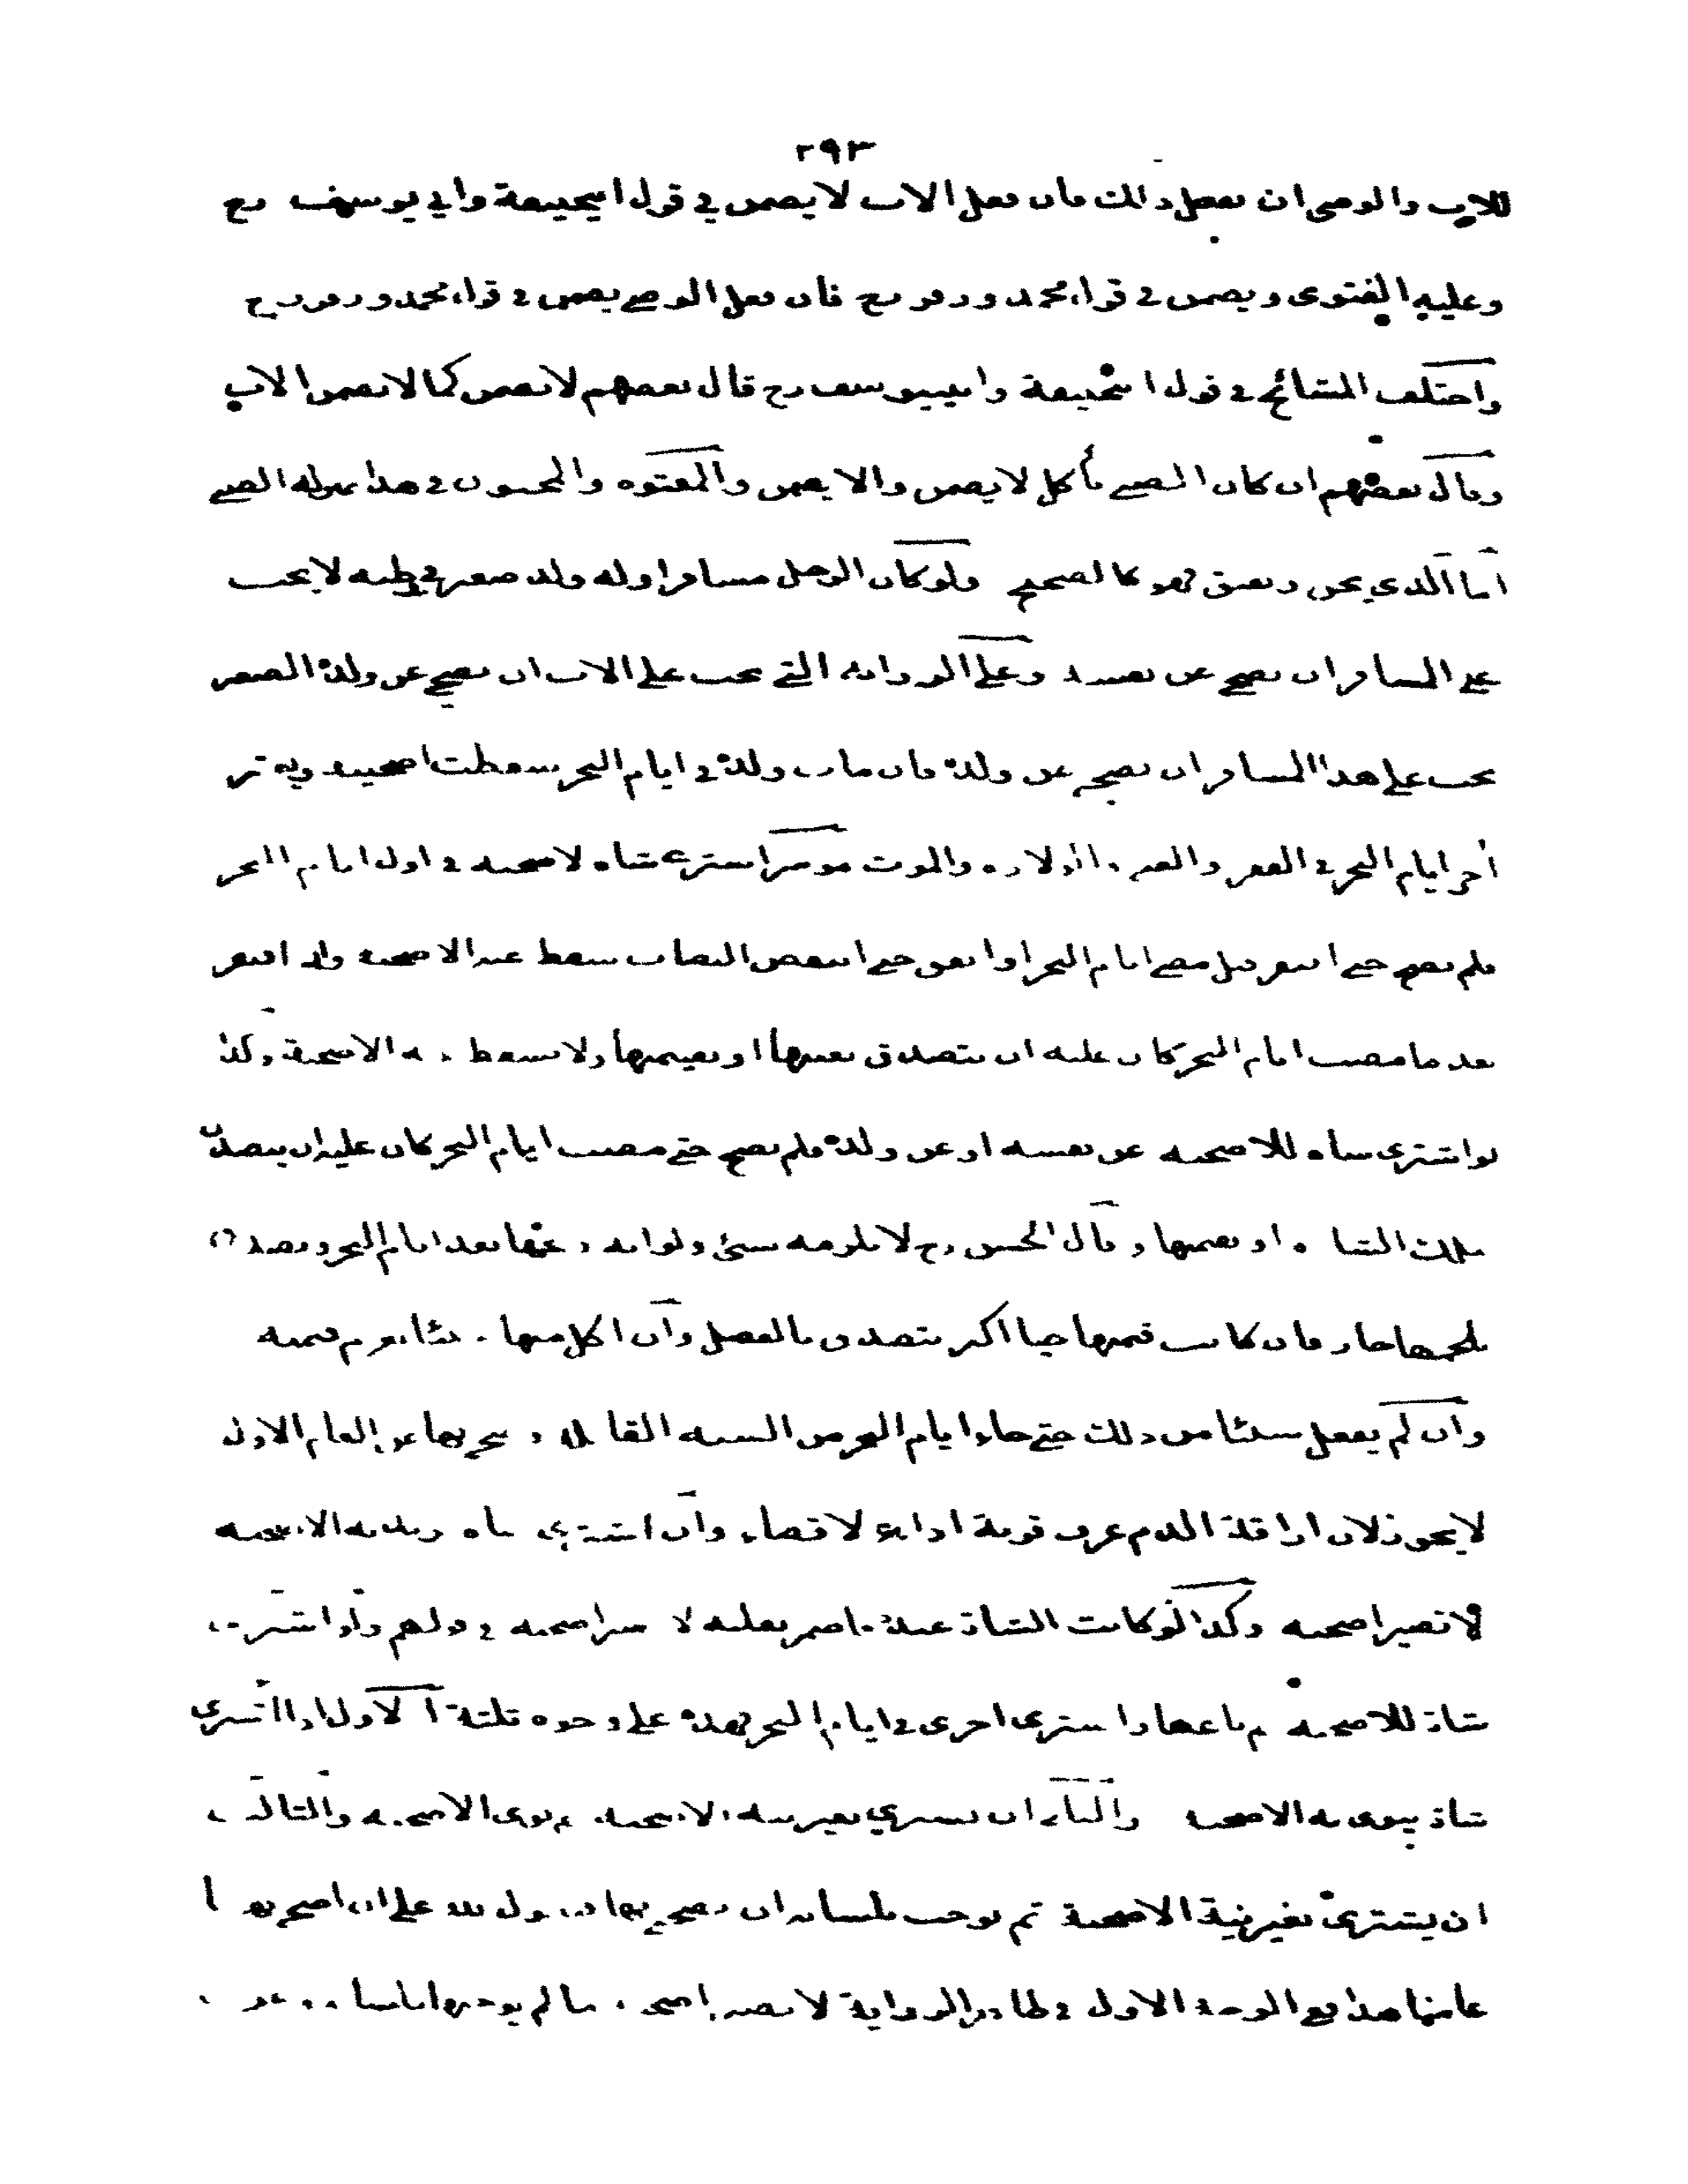 ٢٩٣
للاب والوصي ان يفعل ذلك فان فعل الاب لا يضمن في قول ابيحنيفة وابي يوسف رح
وعليه الفتوى ويضمن في قول محمد وزفر رح فان فعل الوصي يضمن في قول محمد وزفر رح
واختلف المشائخ في قول ابيحنيفة وابييوسف رح قال بعضهم لا يضمن كما لا يضمن الاب
وقال بعضهم ان كان الصبي يأكل لا يضمن والا يضمن والمعتوه والمجنون في هذا بمنزلة الصبي
اما الذي يجن ويفيق فهو كالصحيح ولو كان الرجل مسافرا وله ولد صغير في وطنه لا يجب
على المسافر ان يضحي عن نفسه وعلى الرواية التي يجب على الاب ان يضحي عن ولده الصغير
يجب على هذا المسافر ان يضحي عن ولده فان مات ولده في ايام النحر سقطت اضحيته ويعتبر
آخر ايام النحر في الفقر والغنى والولادة والموت موسر اشترى شاة لاضحية في اول ايام النحر
فلم يضح حتى افتقر قبل مضي ايام النحر او انفق حتى انتقص النصاب سقط عنه الاضحية وان افتقر
بعد ما مضت ايام النحر كان عليه ان يتصدق بعينها او بقيمتها ولا يسقط عنه الاضحية وكذا
لو اشترى شاة للاضحية عن نفسه او عن ولده فلم يضح حتى مضت ايام النحر كان عليه ان يتصدق
بتلك الشاة او بقيمتها وقال الحسن رح لا يلزمه شيئ ولو انه ذبحها بعد ايام النحر وتصدق
بلحمها جاز فان كانت قيمتها حيا اكثر يتصدق بالفضل وان اكل منها شيئا يغرم قيمته
وان لم يفعل شيئا من ذلك حتى جاء ايام النحر من السنة القابلة وضحى بها عن العام الاول
لا يجوز لان اراقة الدم عرف قربة اداء لا قضاء وان اشترى شاة يريد به الاضحية
لا تصير اضحية وكذا لو كانت الشاة عنده فاضمر بقلبه لا تصير اضحية في قولهم ولو اشترى
شاة للاضحية ثم باعها واشترى اخرى في ايام النحر فهذه على وجوه ثلثة الاول اذا اشترى
شاة ينوي به الاضحية والثاني ان يشتري بغير نية الاضحية ثم نوى الاضحية والثالث
ان يشتري بغير نية الاضحية ثم يوجب بلسانه ان يضحي بها فيقول لله علي ان اضحي بها
عامنا هذا ففي الوجه الاول في ظاهر الرواية لا تصير اضحية ما لم يوجبها بلسانه